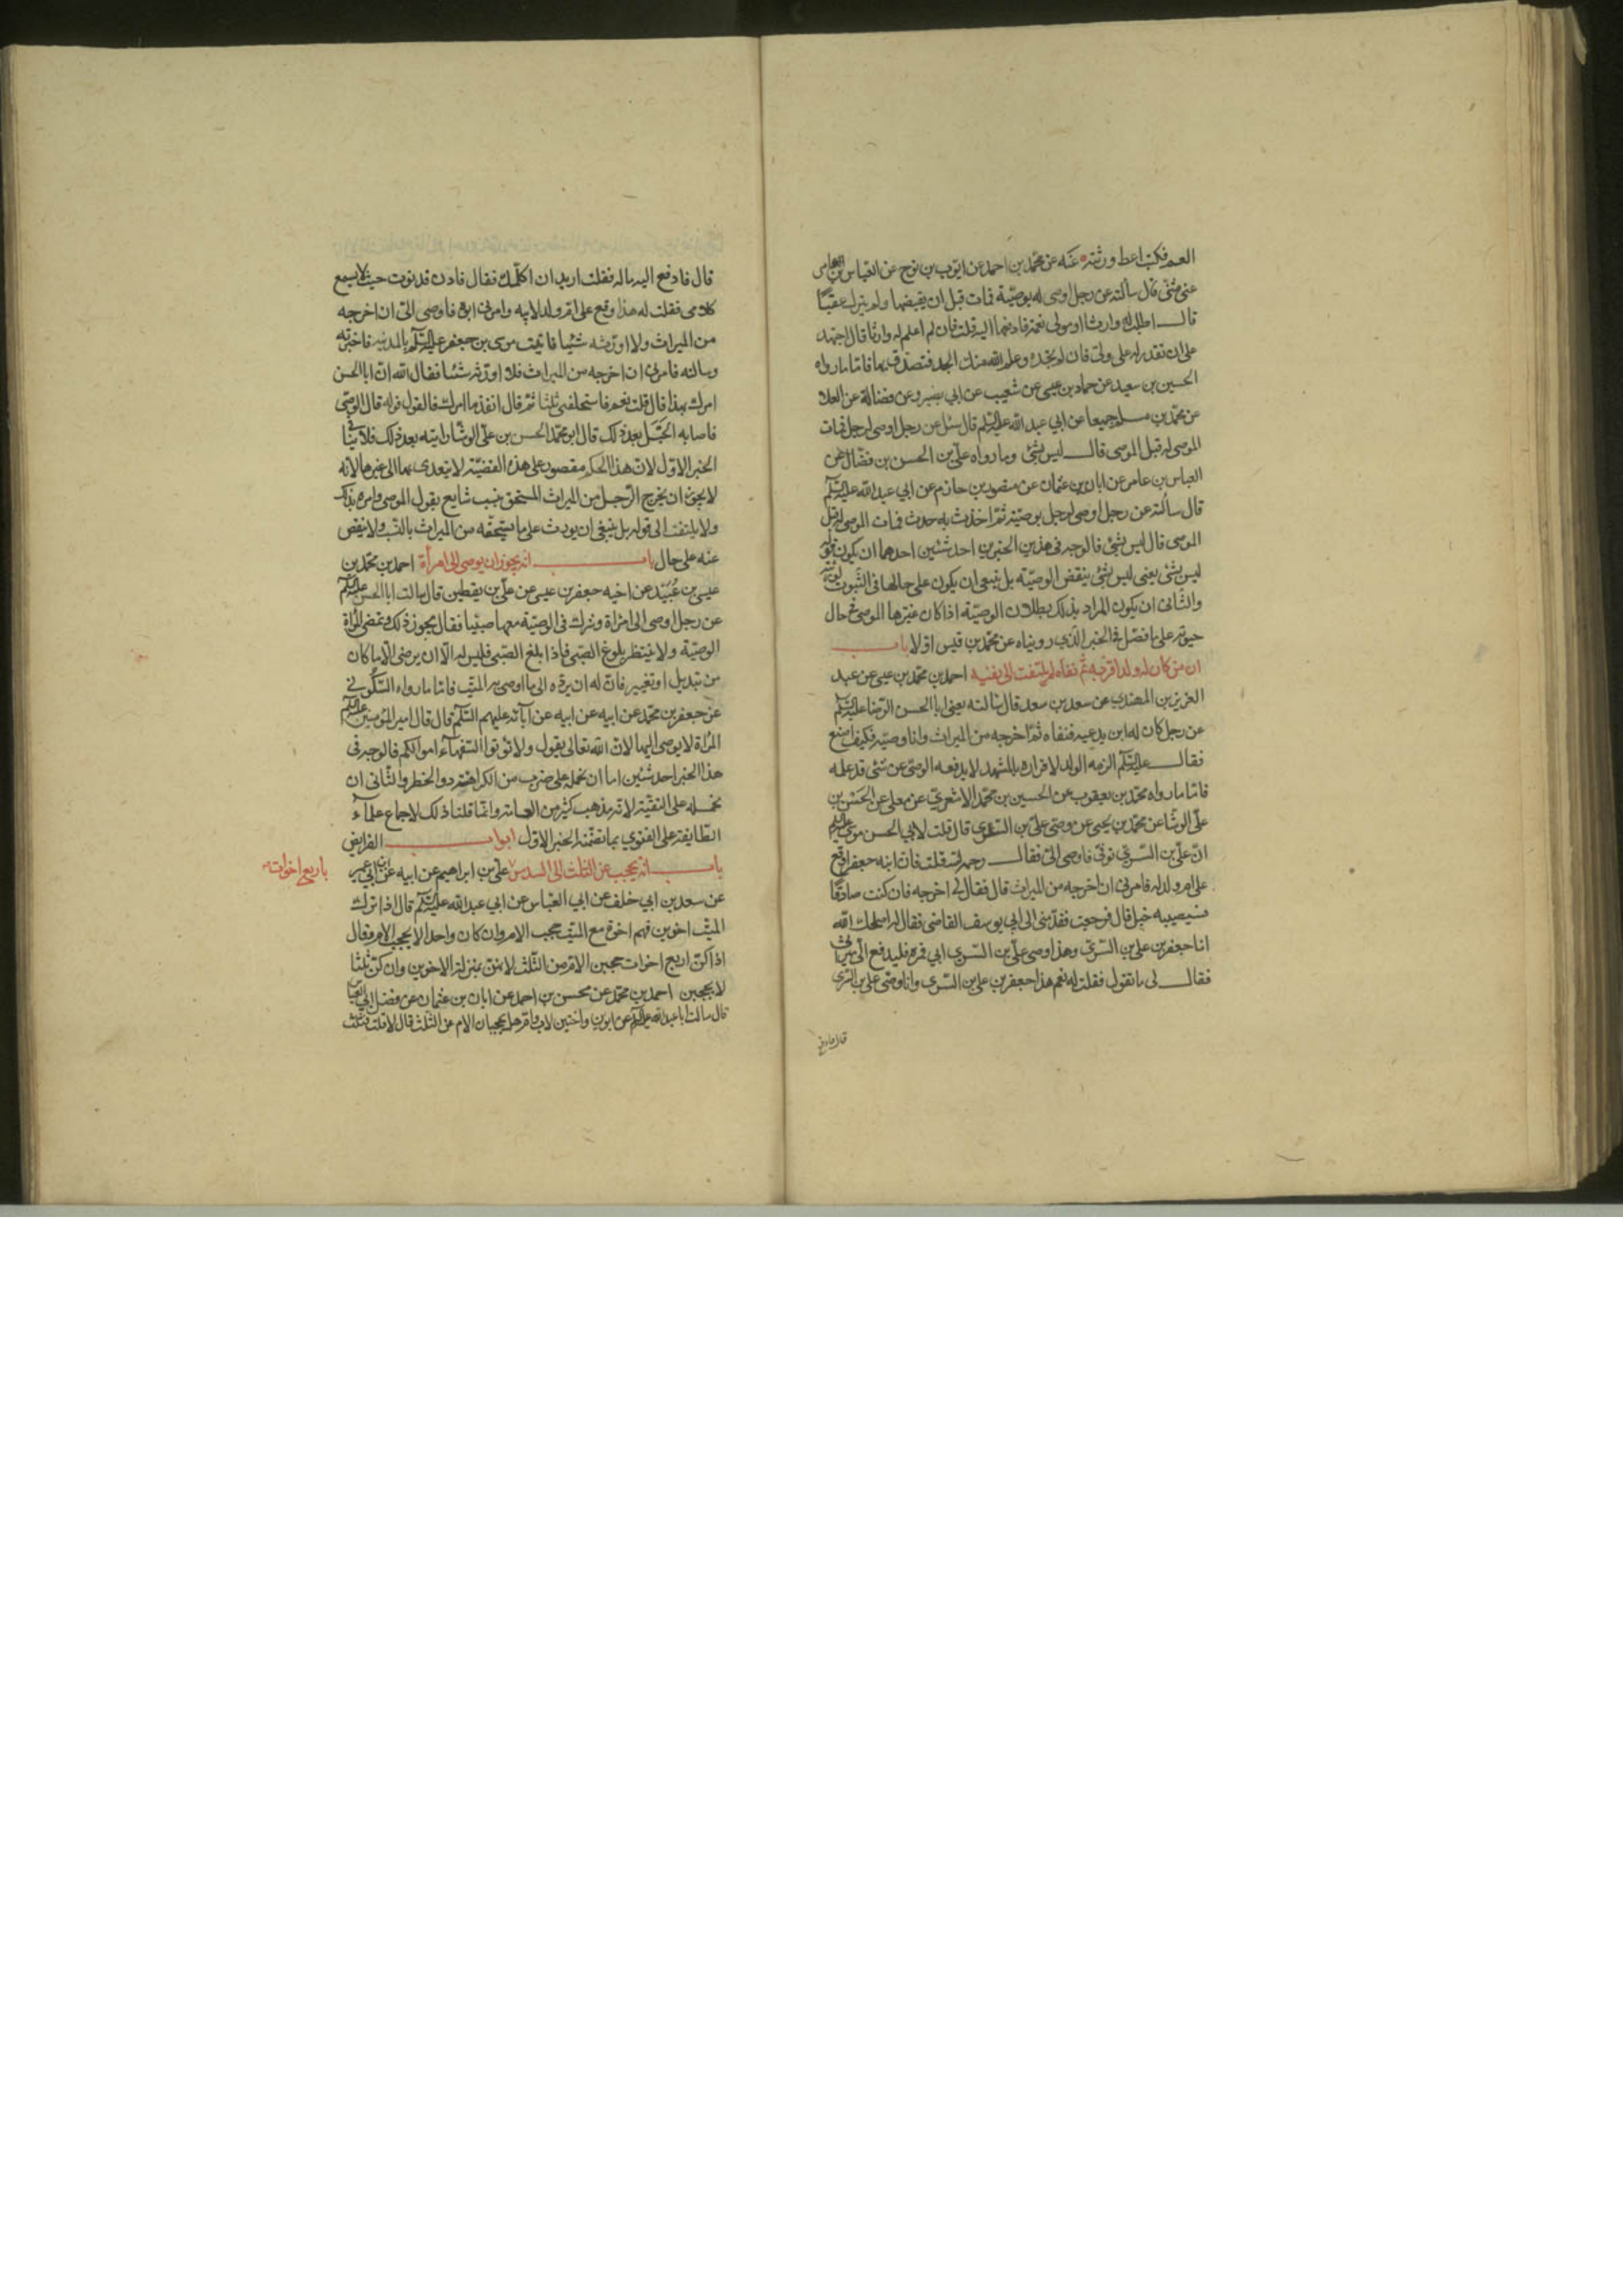 العم فكتب اعط ورثته عنه عن محمد بن احمد عن ايوب بن نوح عن العباس بن عامر
عن مثنى قال سألته عن رجل اوصى له بوصية فمات قبل ان يقبضها ولم يترك عقبًا
قال اطلب له وارثا او مولى نعمة فادفعها اليه قلت فان لم اعلم له وارثا قال اجتهد
على ان تقدر له على ولي فان لم تجده وعلم الله منك الجد فتصدق بها فاما ما رواه
الحسين بن سعيد عن حماد بن عيسى عن شعيب عن ابي بصير وعن فضالة عن العلا
عن محمد بن مسلم جميعا عن ابي عبد الله عليه السلم قال سئل عن رجل اوصى لرجل فمات
الموصى له قبل الموصى قال ليس بشئ وما رواه علي بن الحسن بن فضال عن
العباس بن عامر عن ابان بن عثمان عن منصور بن حازم عن ابي عبد الله عليه السلم
قال سألته عن رجل اوصى لرجل بوصية ان حدث به حدث فمات الموصى له قبل
الموصى قال ليس بشئ فالوجه في هذين الخبرين احد شئين احدهما ان يكون قوله
ليس بشئ يعني ليس بشئ ينقض الوصية بل ينبغي ان يكون على حالها في الثبوت لورثته
والثاني ان يكون المراد بذلك بطلان الوصية اذا كان غيرها الموصى في حال
حيوته على ما فصل في الخبر الذي رويناه عن محمد بن قيس اولا باب
ان من كان له ولد اقر به ثم نفاه لم يلتفت الى نفيه احمد بن محمد بن عيسى عن عبد
العزيز بن المهتدي عن سعد بن سعد قال سالته يعني ابا الحسن الرضا عليه السلم
عن رجل كان له ابن يدعيه فنفاه ثم اخرجه من الميراث وانا وصيه فكيف اصنع
فقال عليه السلم لزمه الولد لاقراره بالمشهد لا يدفعه الوصى عن شئ قد علمه
فاما ما رواه محمد بن يعقوب عن الحسين بن محمد الاشعري عن معلى عن الحسن بن
علي الوشا عن محمد بن يحيى عن وصي علي بن السري قال قلت لابي الحسن موسى عليه السلم
ان علي بن السري توفى فاوصى الي فقال رحمه الله قلت فان ابنه جعفرا وقع
على ام ولد له فامرني ان اخرجه من الميراث قال فقال لي اخرجه فان كنت صادقا
فسيصيبه خبل قال فرجعت فقدمني الى ابي يوسف القاضي فقال له اصلحك الله
انا جعفر بن علي بن السري وهذا وصي علي بن السري ابي فمره فليدفع الي ميراثي
فقال لي ما تقول فقلت له نعم هذا جعفر بن علي بن السري وانا وصي علي بن السري
قال فادفع
قال فادفع اليه ماله فقلت اريد ان اكلمك فقال فادن فدنوت حيث لا يسمع
كلامى فقلت له هذا وقع على ام ولد لابيه وامرني ابوه فاوصى الي ان اخرجه
من الميراث ولا اورثه شئيا فاتيت موسى بن جعفر عليه السلم بالمدينة فاخبرته
وسالته فامرني ان اخرجه من الميراث فلا اورثه شئيا فقال الله ان ابا الحسن
امرك بهذا قال قلت نعم فاستحلفني ثلثا ثم قال انفذ ما امرك فالقول قوله قال الوصى
فاصابه الخبل بعد ذلك قال ابو محمد الحسن بن علي الوشا رايته بعد ذلك فلا ينافى
الخبر الاول لان هذا الحكم مقصور على هذه القضية لا يتعدى بها الى غيرها لانه
لا يجوز ان يخرج الرجل من الميراث المستحق بنسب شايع بقول الموصى وامره بذلك
ولا يلتفت الى قوله بل ينبغي ان يورث على ما يستحقه من الميراث بالنسب ولا ينقص
عنه على حال باب انه يجوز ان يوصى الى امرأة احمد بن محمد بن
عيسى بن عُبَيد عن اخيه جعفر بن عيسى عن علي بن يقطين قال سالت ابا الحسن عليه السلم
عن رجل اوصى الى امراة وشرك في الوصية معها صبيا فقال يجوز ذلك وتمضى المراة
الوصية ولا ينتظر بلوغ الصبى فاذا بلغ الصبى فليس له الا ان يرضى الا ما كان
من تبديل او تغيير فان له ان يرده الى ما اوصى به الميت فاما ما رواه السكوني
عن جعفر بن محمد عن ابيه عن ابيه عن آبائه عليهم السلم قال قال امير المؤمنين عليه السلم
المراة لا يوصى اليها لان الله تعالى يقول ولا تؤتوا السفهآء اموالكم فالوجه في
هذا الخبر احد شئين اما ان نحمله على ضرب من الكراهة دون الحظر والثاني ان
نحمله على التقية لانه مذهب كثير من العامة وانما قلنا ذلك لاجماع علمآء
الطايفة على الفتوي بما تضمنه الخبر الاول ابواب الفرايض
باب انه يحجب عن الثلث الى السدس علي بن ابراهيم عن ابيه عن ابن ابي عمير
باربع اخوات
عن سعد بن ابي خلف عن ابي العباس عن ابي عبد الله عليه السلم قال اذا ترك
الميت اخوين فهم اخوة مع الميت حجب الام وان كان واحدا لا يحجب الام وقال
اذا كن اربع اخوات حجبن الام من الثلث لانهن بمنزلة الاخوين وان كن ثلثا
لا يحجبن احمد بن محمد عن محسن بن احمد عن ابان بن عثمان عن فضل ابي العباس
قال سالت ابا عبد الله عليه السلم عن ابوين واختين لاب وام هل يحجبان الام عن الثلث قال لا قلت فثلث